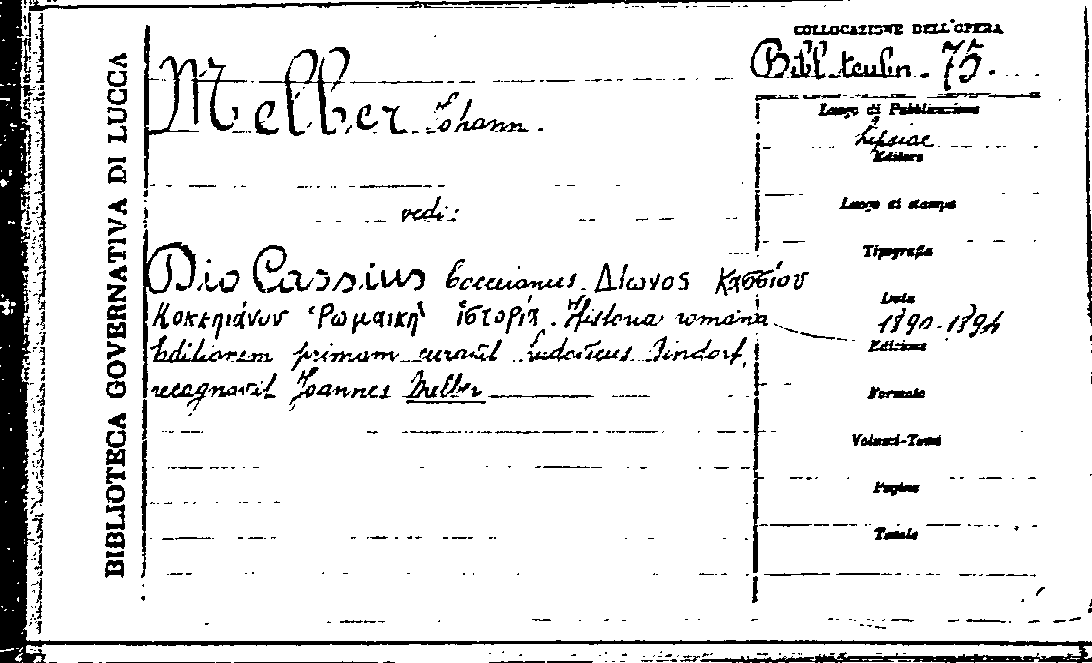 BIBLIOTECA GOVERNATIVA DI LUCCA
Melber Johann.
vedi:
Dio Cassius Cocceianus. Δίωνος Κασσίου
Κοκκηιάνου Ῥωμαικὴ ἱστορία. Historia romana
Editionem primam curavit Ludovicus Dindorf,
recognovit Joannes Melber
COLLOCAZIONE DELL'OPERA
Bibl. teubn. 75.
Luogo di Pubblicazione
Lipsiae
Editore
Luogo di stampa
Tipografia
Data
1890-1894
Edizione
Formato
Volumi-Tomi
Pagine
Tavole